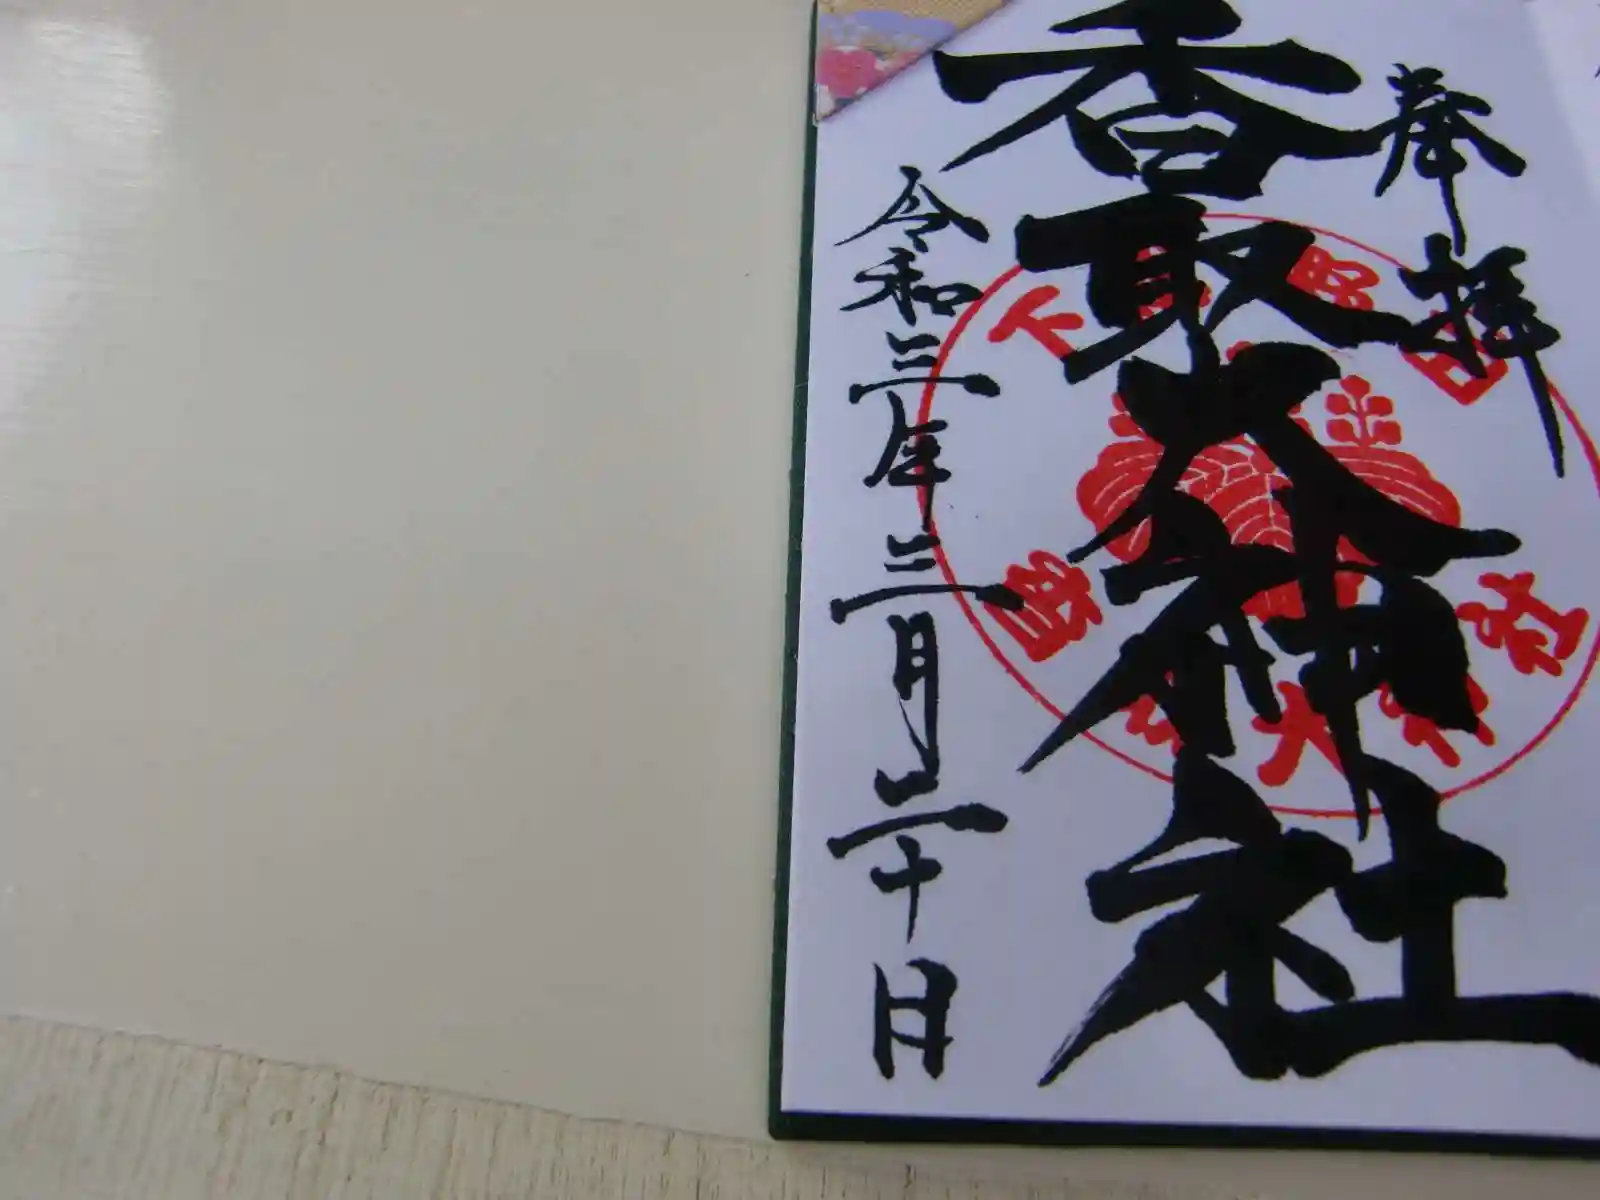 奉拝
香取大神社
令和三年三月二十日